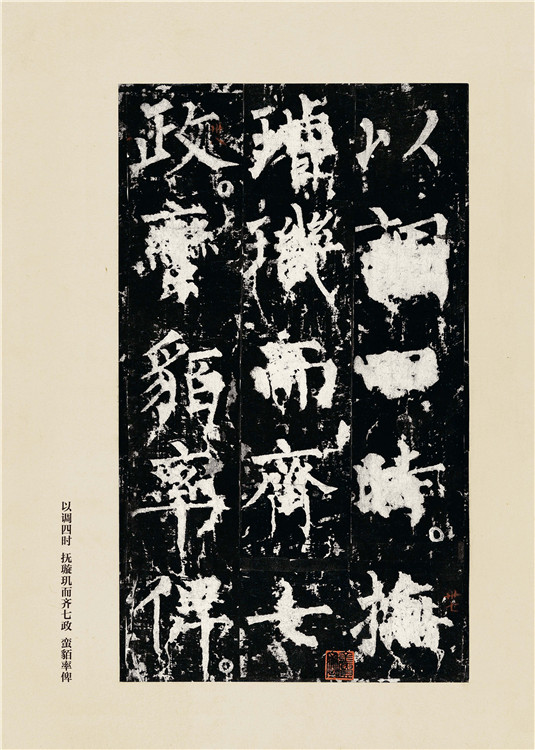 以調四時撫
璿璣而齊七
政蠻貊率俾
以调四时 抚璇玑而齐七政 蛮貊率俾